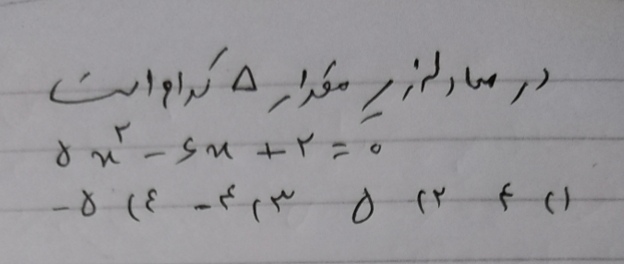 در معادله زیر مقدار Δ کدام است
۵x^۲ - ۶x + ۲ = ۰
۱) ۴ ۲) ۵ ۳) -۴ ۴) -۵